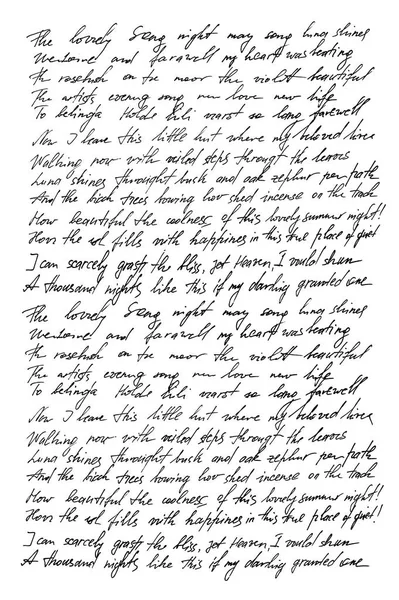 The lovely song night may song luna shines
Welcome and farawell my heart was beating
th rosebush on the moor the violet beautiful
The artists evening song new love new life
To belinda Holde Lili warst so long farewell
Now I leave this little hut where my beloved lives
Walking now with veiled steps throught the leaves
Luna shines throught bush and oak zephur per path
And the birch trees bowing low shed incense on the track
How beautiful the coolness of this lovely summer night!
How the sol fills with happines in this true place of quiet!
I can scarcely grasp the bliss, jet Heaven, I would shun
A thousand nights like this if my darling granted one
The lovely song night may song luna shines
Welcome and farawell my heart was beating
th rosebush on the moor the violet beautiful
The artists evening song new love new life
To belinda Holde Lili warst so long farewell
Now I leave this little hut where my beloved lives
Walking now with veiled steps throught the leaves
Luna shines throught bush and oak zephur per path
And the birch trees bowing low shed incense on the track
How beautiful the coolness of this lovely summer night!
How the sol fills with happines in this true place of quiet!
I can scarcely grasp the bliss, jet Heaven, I would shun
A thousand nights like this if my darling granted one